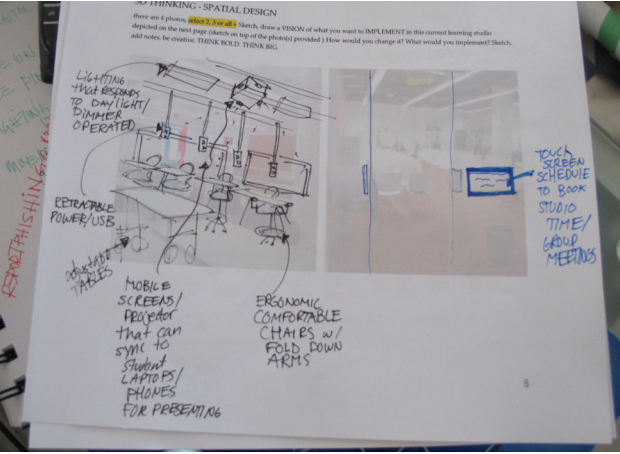 3D THINKING - SPATIAL DESIGN
there are 4 photos, select 2, 3 or all + Sketch, draw a VISION of what you want to IMPLEMENT in this current learning studio
depicted on the next page (sketch on top of the photo(s) provided ) How would you change it? What would you implement? Sketch,
add notes, be creative. THINK BOLD. THINK BIG.
LIGHTING
that RESPONDS
TO DAYLIGHT/
DIMMER
OPERATED
RETRACTABLE
POWER/USB
adjustable
TABLES
MOBILE
SCREENS/
PROJECTOR
that can
sync to
student
LAPTOPS/
PHONES
FOR PRESENTING
ERGONOMIC
COMFORTABLE
CHAIRS w/
FOLD DOWN
ARMS
TOUCH
SCREEN
SCHEDULE
TO BOOK
STUDIO
TIME/
GROUP
MEETINGS
5